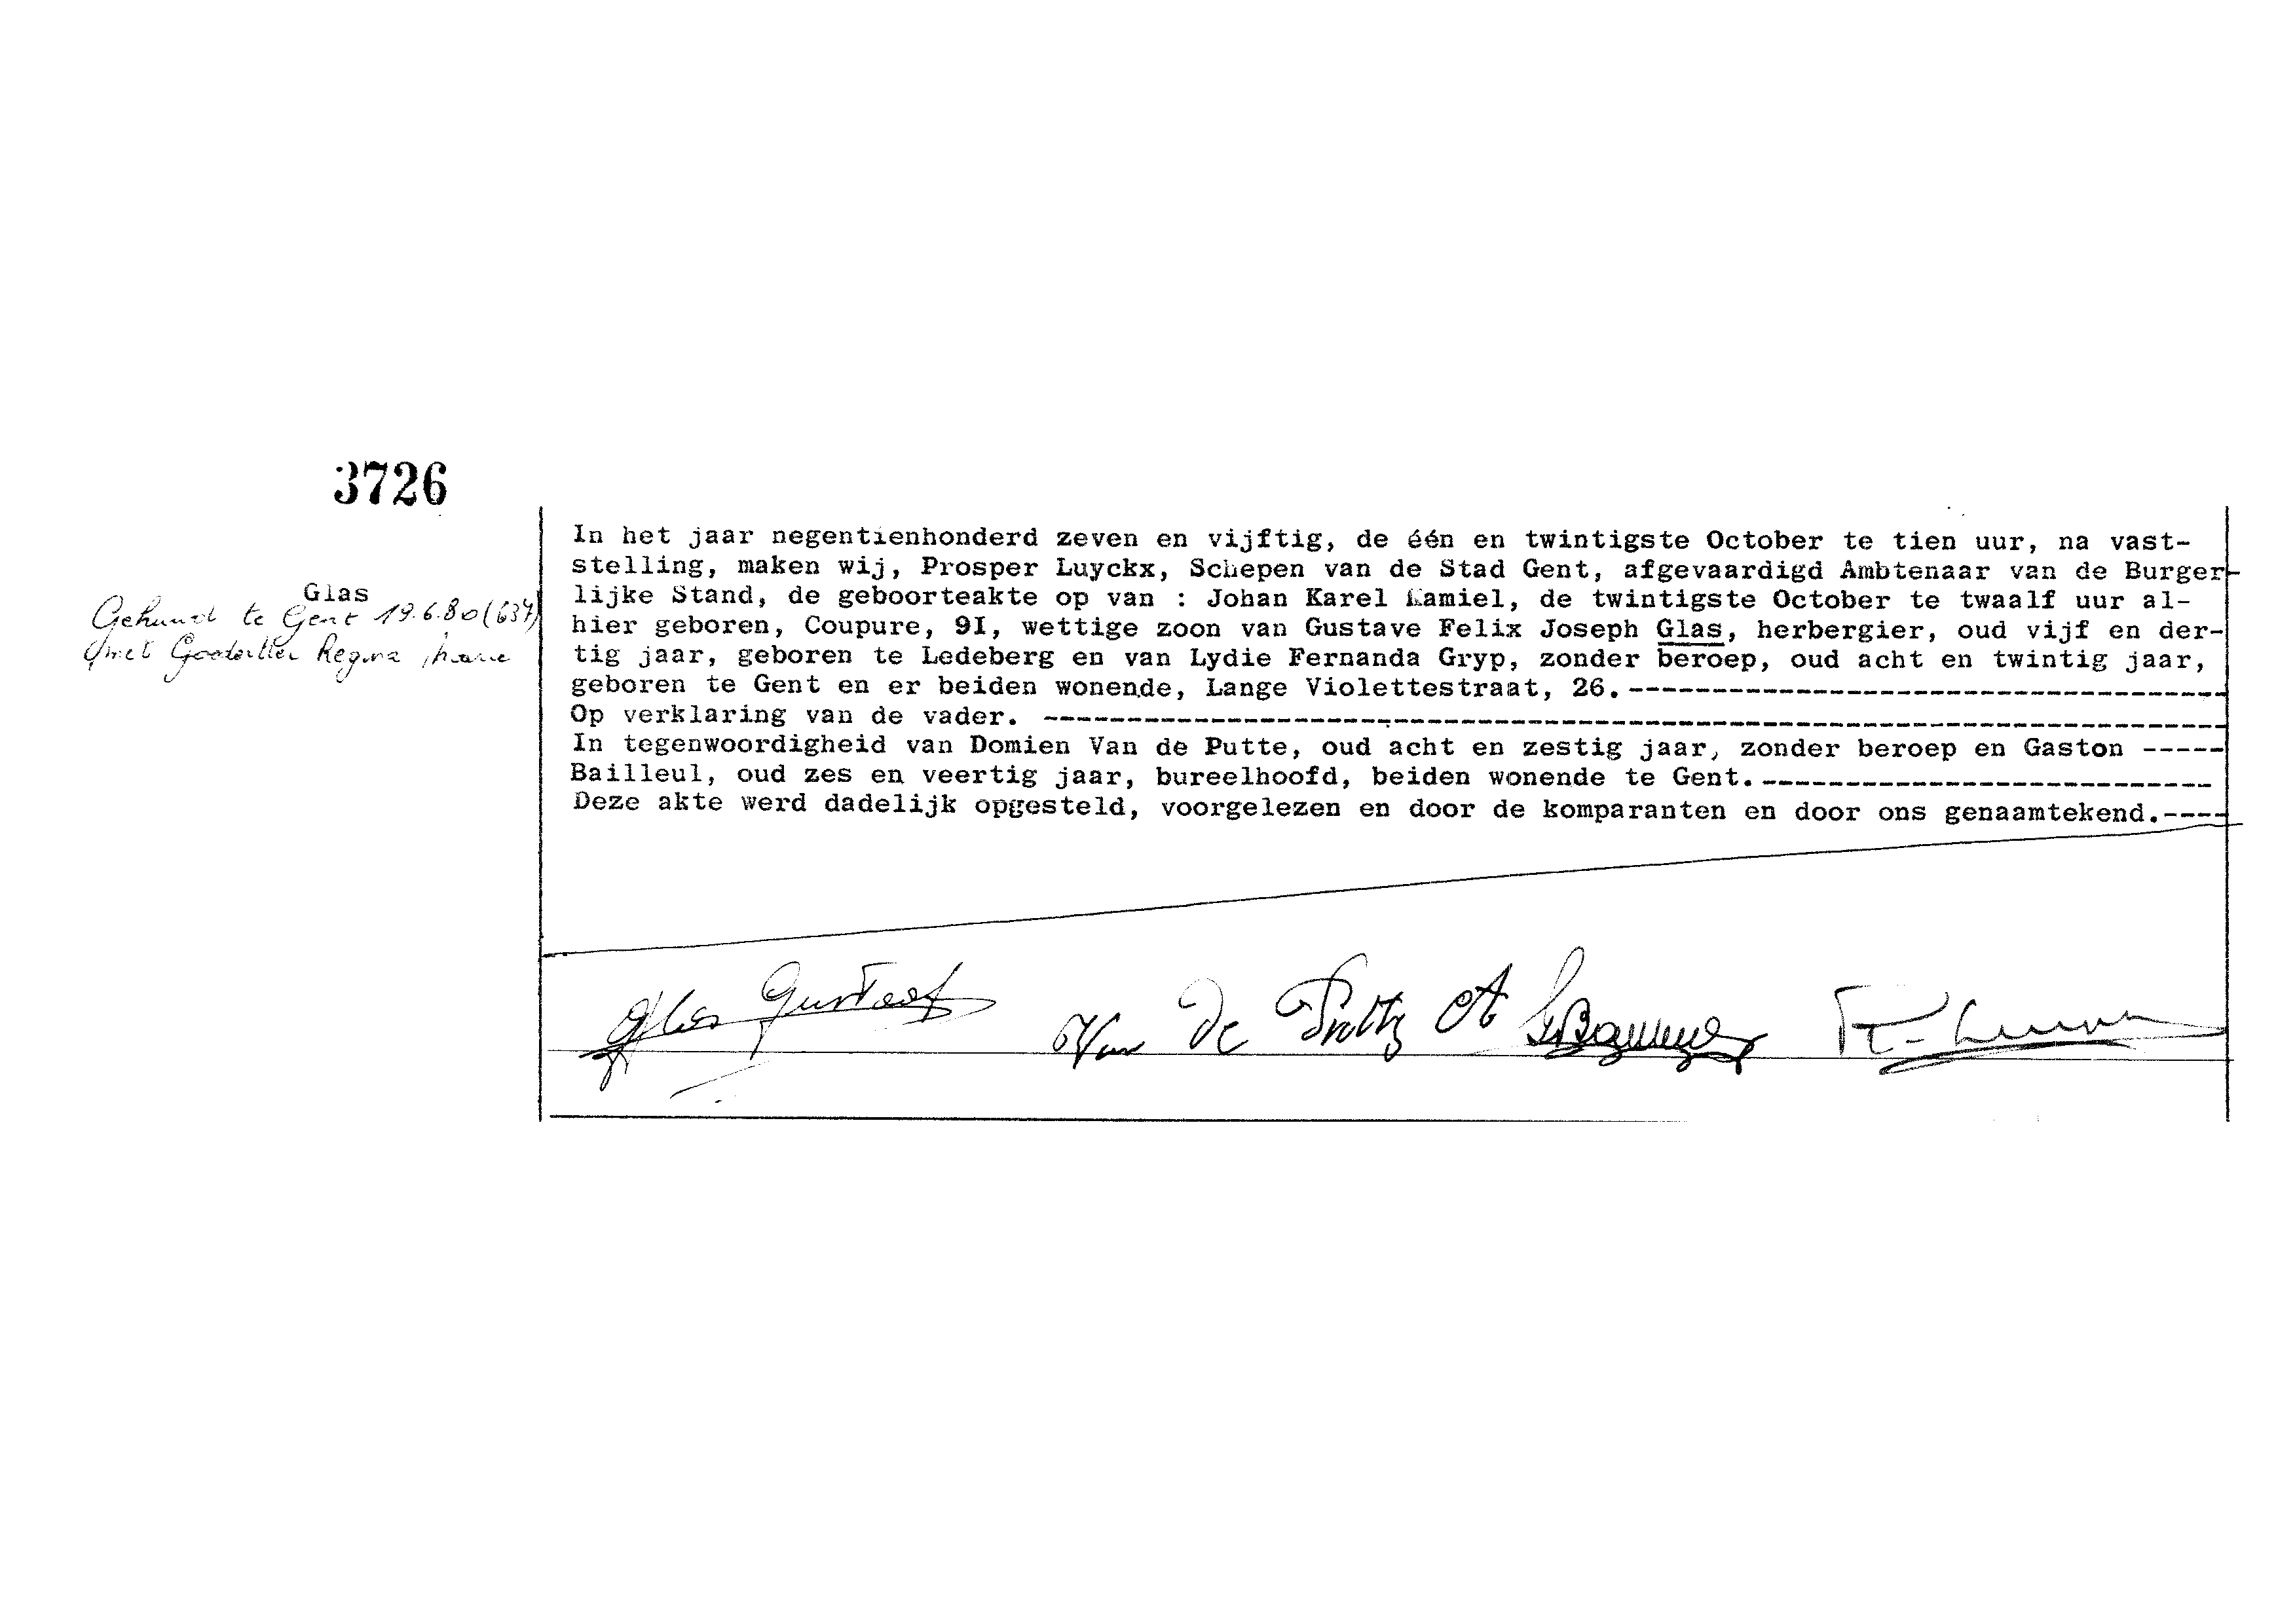 3726
Glas
Gehuwd te Gent 19.6.80 (637)
met Goedertier Regina Marie
In het jaar negentienhonderd zeven en vijftig, de één en twintigste October te tien uur, na vast-
stelling, maken wij, Prosper Luyckx, Schepen van de Stad Gent, afgevaardigd Ambtenaar van de Burger-
lijke Stand, de geboorteakte op van : Johan Karel Kamiel, de twintigste October te twaalf uur al-
hier geboren, Coupure, 9I, wettige zoon van Gustave Felix Joseph Glas, herbergier, oud vijf en der-
tig jaar, geboren te Ledeberg en van Lydie Fernanda Gryp, zonder beroep, oud acht en twintig jaar,
geboren te Gent en er beiden wonende, Lange Violettestraat, 26.-----------------------------------
Op verklaring van de vader. ----------------------------------------------------------------------
In tegenwoordigheid van Domien Van de Putte, oud acht en zestig jaar, zonder beroep en Gaston -----
Bailleul, oud zes en veertig jaar, bureelhoofd, beiden wonende te Gent.---------------------------
Deze akte werd dadelijk opgesteld, voorgelezen en door de komparanten en door ons genaamtekend.----
Glas Gustaaf Van De Putte